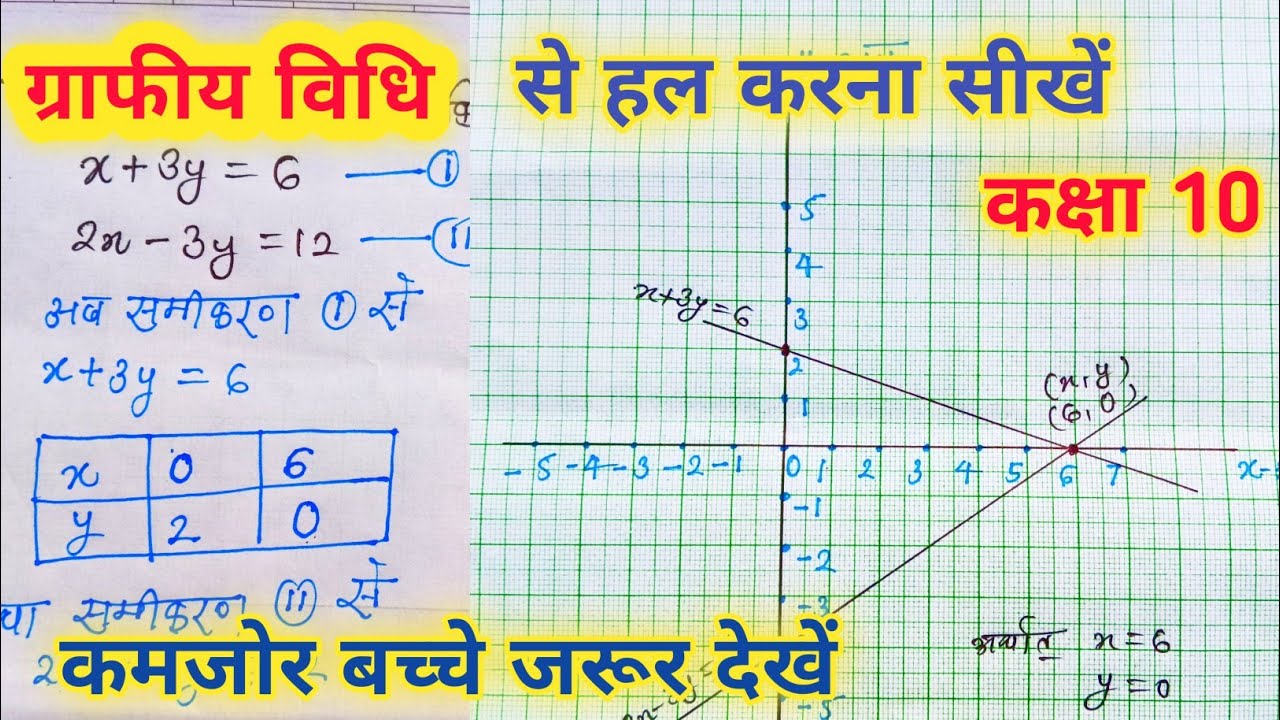 ग्राफीय विधि से हल करना सीखें
कक्षा 10
x + 3y = 6 ——— (i)
2x - 3y = 12 —— (ii)
अब समीकरण (i) से
x + 3y = 6
x 0 6
y 2 0
समीकरण (ii) से
5
4
x+3y=6
3
2
1
(x, y)
(6, 0)
-5 -4 -3 -2 -1 0 1 2 3 4 5 6 7 x-
-1
-2
-3
-5
अर्थात् x = 6
y = 0
कमजोर बच्चे जरूर देखें